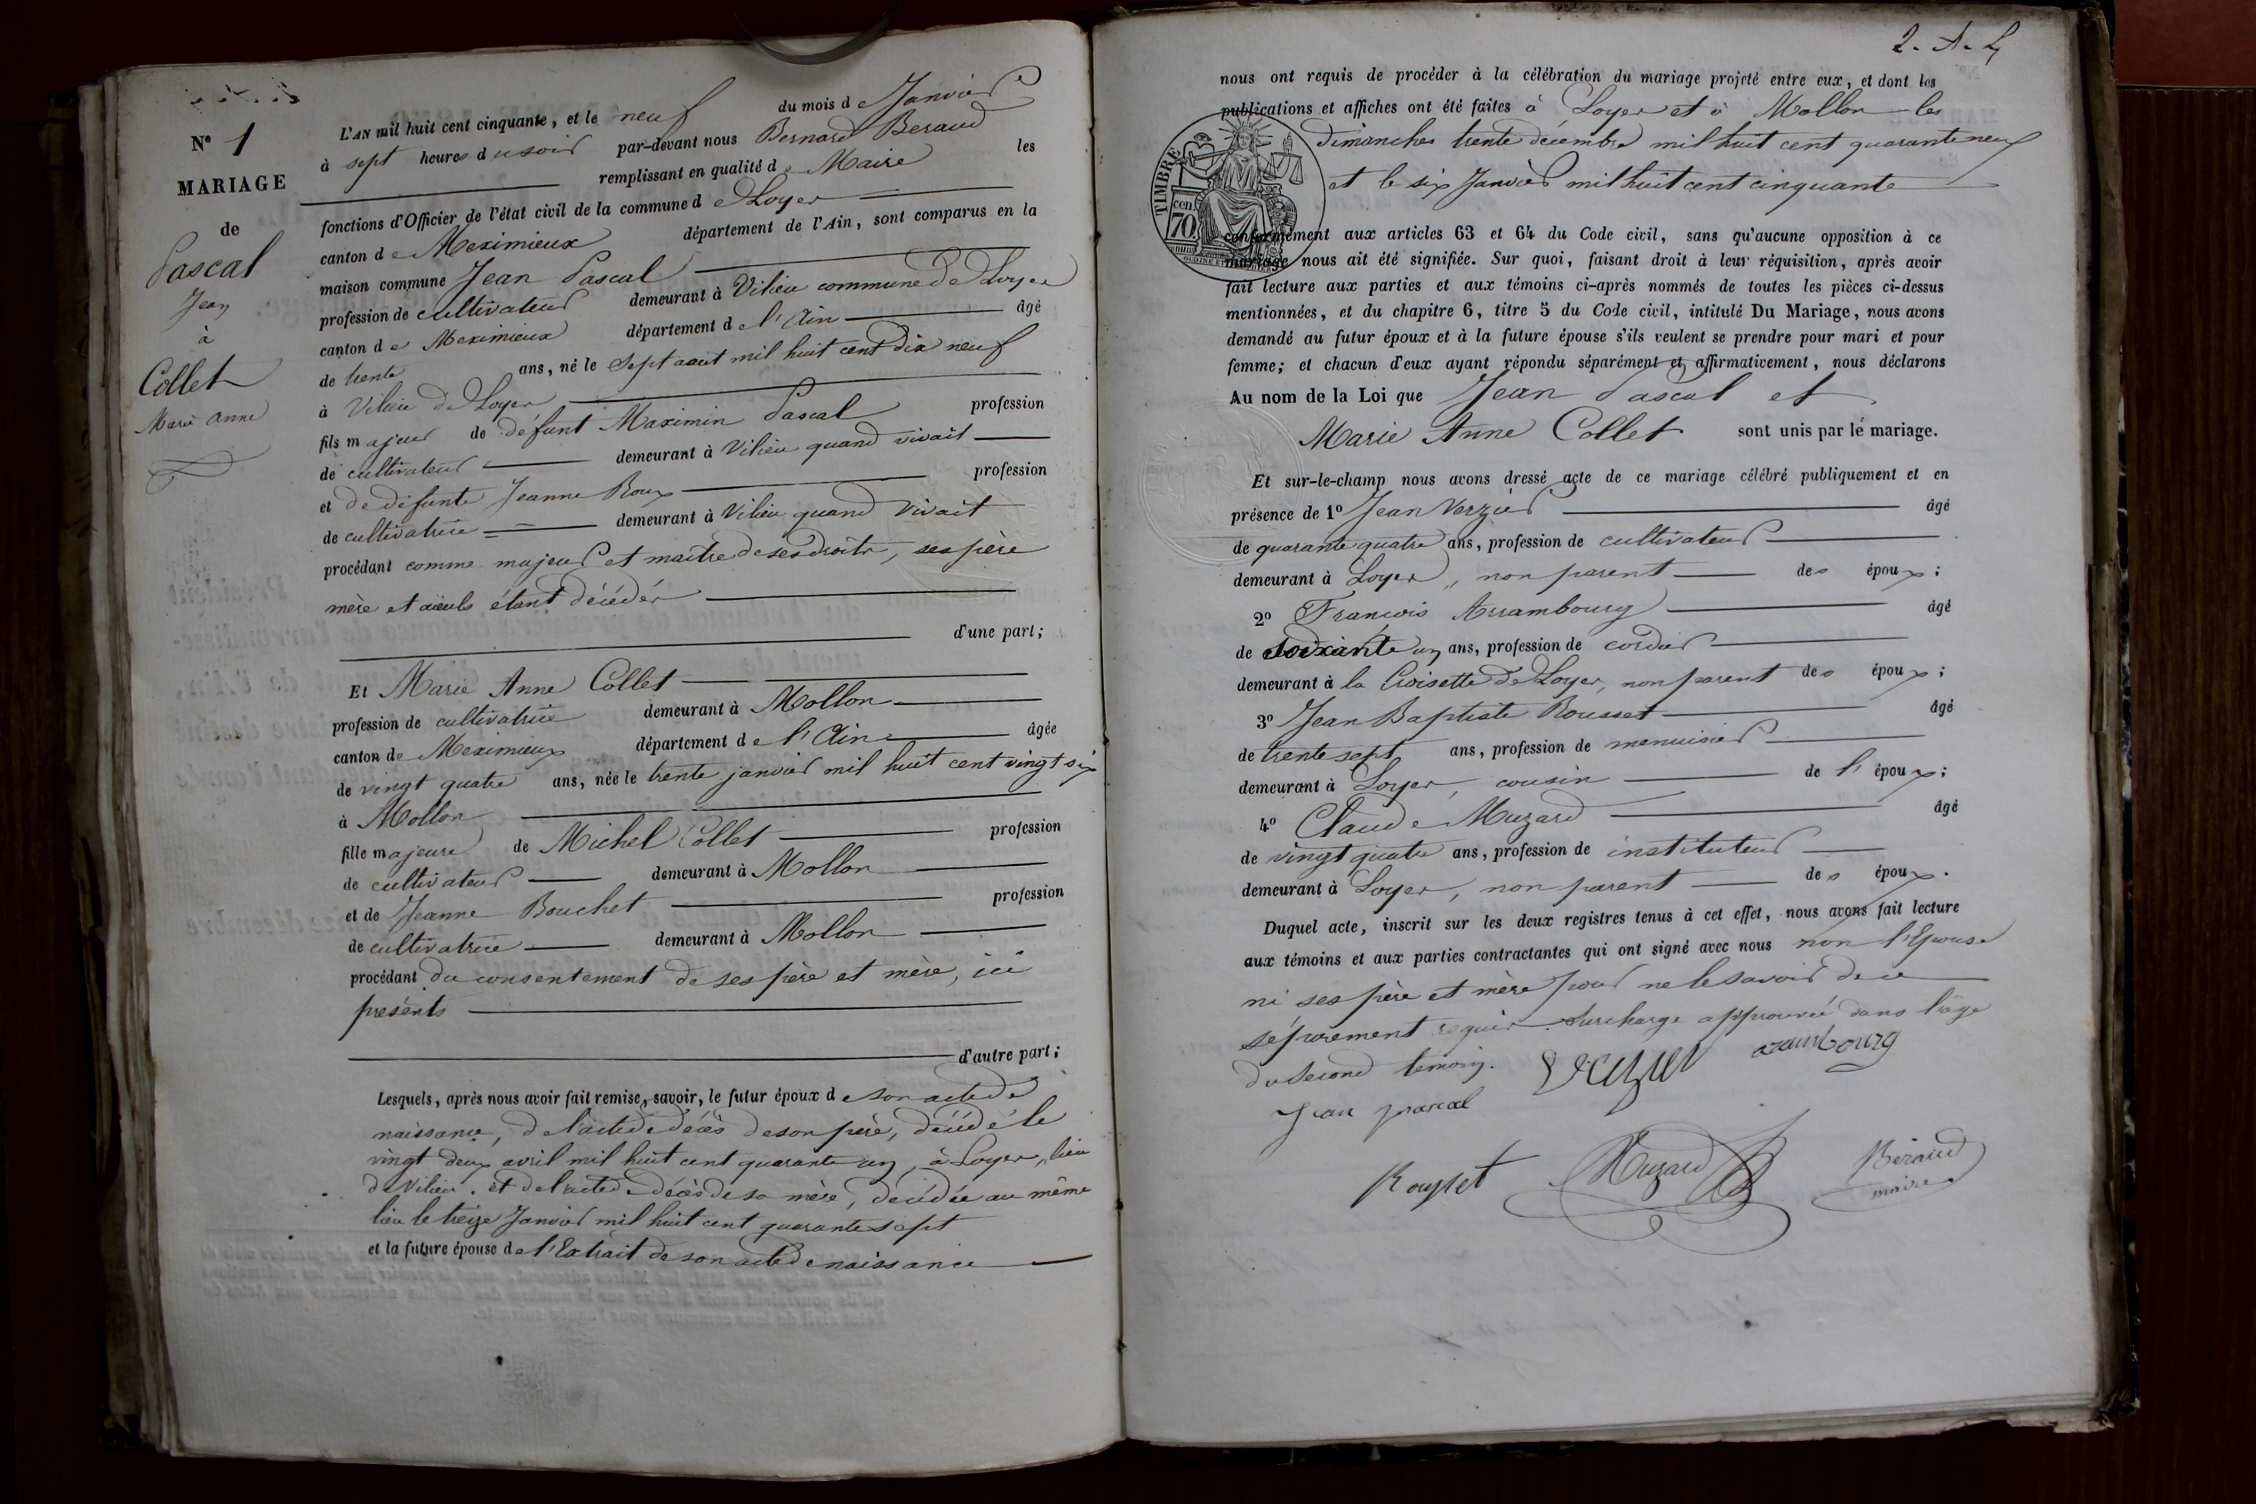 Nº 1
MARIAGE
de
Pascal
Jean
à
Collet
Marie Anne
L'AN mil huit cent cinquante, et le neuf du mois de Janvier
à sept heures du soir par-devant nous Bernard Beraud
remplissant en qualité de Maire les
fonctions d'Officier de l'état civil de la commune de Loyes
canton de Meximieux département de l'Ain, sont comparus en la
maison commune Jean Pascal
profession de cultivateur demeurant à Vilieu commune de Loyes
canton de Meximieux département de l'Ain âgé
de trente ans, né le sept aout mil huit cent dix neuf
à Vilieu de Loyes
fils majeur de défunt Maximin Pascal profession
de cultivateur demeurant à Vilieu quand vivait
et de défunte Jeanne Roux profession
de cultivatrice demeurant à Vilieu quand vivait
procédant comme majeur et maitre de ses droits, ses père
mère et aïeuls étant décédés
d'une part;
Et Marie Anne Collet
profession de cultivatrice demeurant à Mollon
canton de Meximieux département de l'Ain âgée
de vingt quatre ans, née le trente janvier mil huit cent vingt six
à Mollon
fille majeure de Michel Collet profession
de cultivateur demeurant à Mollon
et de Jeanne Bouchet profession
de cultivatrice demeurant à Mollon
procédant du consentement de ses père et mère, ici
présents
d'autre part;
Lesquels, après nous avoir fait remise, savoir, le futur époux de son acte de
naissance, de l'acte de décès de son père, décédé le
vingt deux avril mil huit cent quarante un, à Loyes, lieu
de Vilieu. et de l'acte de décès de sa mère, décédée au même
lieu le treize Janvier mil huit cent quarante sept
et la future épouse de l'Extrait de son acte de naissance
2. A. L
nous ont requis de procéder à la célébration du mariage projeté entre eux, et dont les
publications et affiches ont été faites à Loyes et à Mollon les
Dimanches trente décembre mil huit cent quarante neuf
et le six Janvier mil huit cent cinquante
TIMBRE
70 cen.
conformément aux articles 63 et 64 du Code civil, sans qu'aucune opposition à ce
mariage nous ait été signifiée. Sur quoi, faisant droit à leur réquisition, après avoir
fait lecture aux parties et aux témoins ci-après nommés de toutes les pièces ci-dessus
mentionnées, et du chapitre 6, titre 5 du Code civil, intitulé Du Mariage, nous avons
demandé au futur époux et à la future épouse s'ils veulent se prendre pour mari et pour
femme; et chacun d'eux ayant répondu séparément et affirmativement, nous déclarons
Au nom de la Loi que Jean Pascal et
Marie Anne Collet sont unis par le mariage.
Et sur-le-champ nous avons dressé acte de ce mariage célébré publiquement et en
présence de 1º Jean Verzier âgé
de quarante quatre ans, profession de cultivateur
demeurant à Loyes, non parent des époux;
2º François Arrambourg âgé
de soixante un ans, profession de cordier
demeurant à la Croisette de Loyes, non parent des époux;
3º Jean Baptiste Rousset âgé
de trente sept ans, profession de menuisier
demeurant à Loyes, cousin de l'époux;
4º Claude Muzard âgé
de vingt quatre ans, profession de instituteur
demeurant à Loyes, non parent des époux.
Duquel acte, inscrit sur les deux registres tenus à cet effet, nous avons fait lecture
aux témoins et aux parties contractantes qui ont signé avec nous non l'Epouse
ni ses père et mère pour ne le savoir de ce
séparement requis. Surcharge approuvée dans l'âge
du second témoin. Verzier arambourg
Jean pascal
Rousset Muzard Béraud
maire